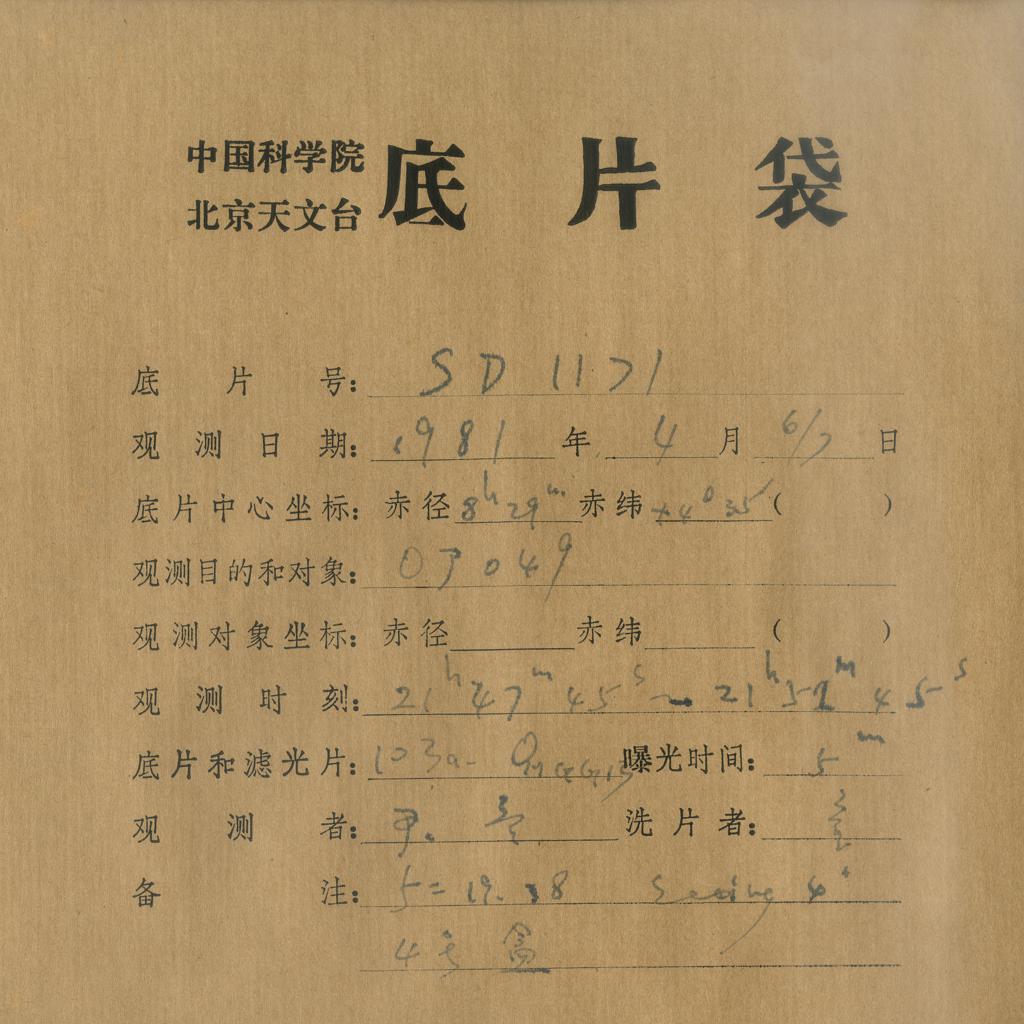 中国科学院
北京天文台
底片袋
底片号: SD 1171
观测日期: 1981年 4月 6/7日
底片中心坐标: 赤径 8h29m 赤纬 +4°35′ ( )
观测目的和对象: OJ 049
观测对象坐标: 赤径 赤纬 ( )
观测时刻: 21h47m45s ~ 21h52m45s
底片和滤光片: 103a-O 曝光时间: 5m
观测者: 洗片者:
备注: S=19. 8 Seeing 4"
4号盒